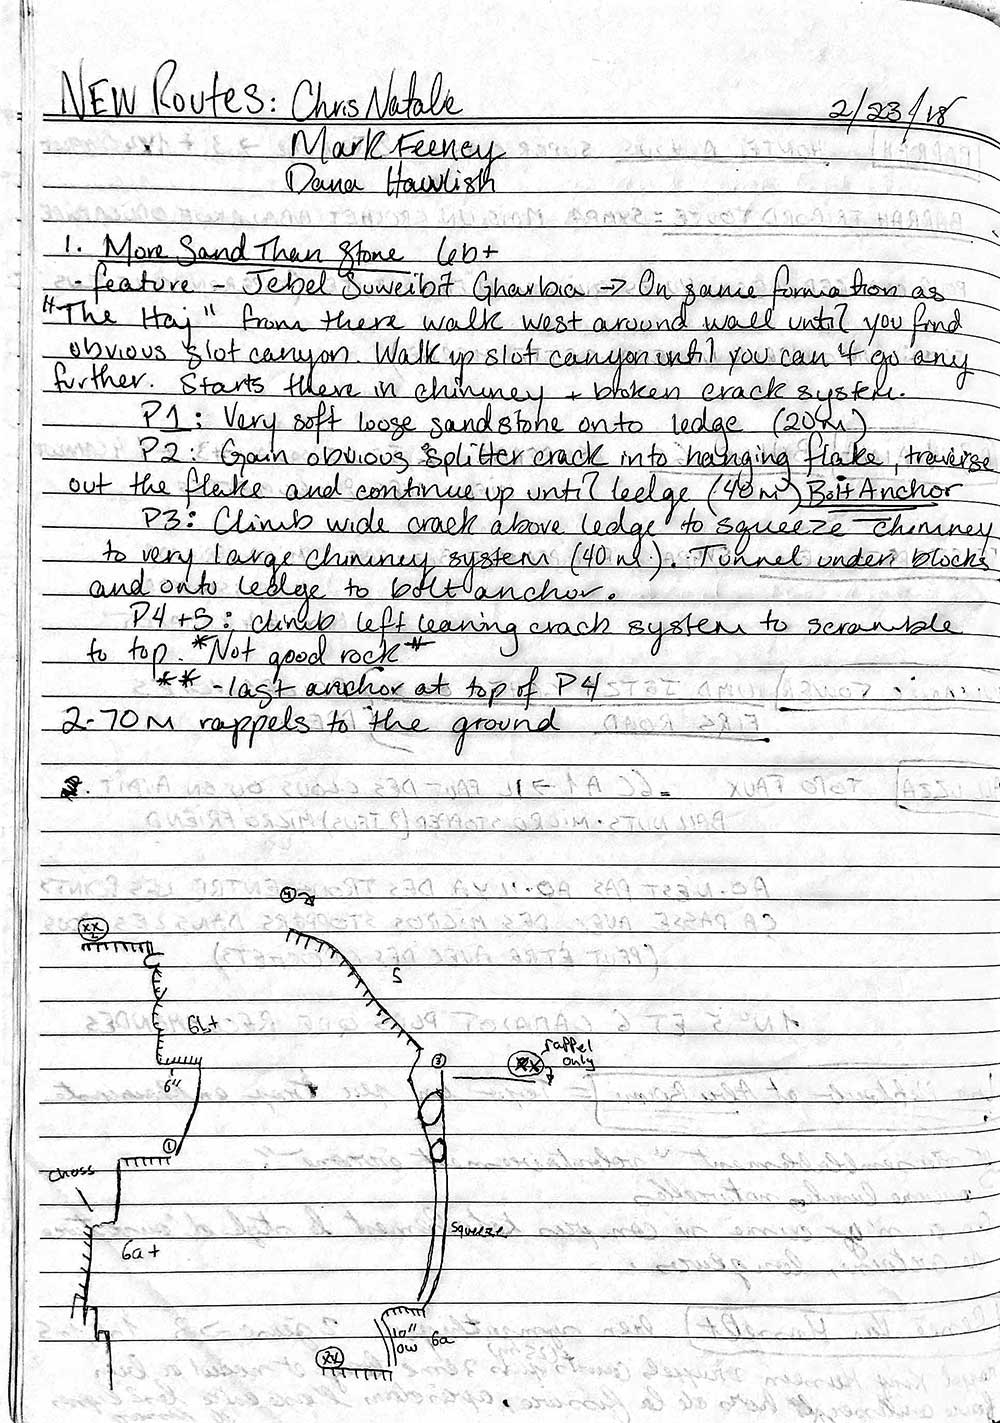 NEW Routes: Chris Natalie 2/23/18
Mark Feeney
Dana Hawlish
1. More Sand Than Stone 6b+
- feature - Jebel Suweibit Gharbia → On same formation as
"The Haj" from there walk west around wall until you find
obvious slot canyon. Walk up slot canyon until you can't go any
further. Starts there in chimney + broken crack system.
P1: Very soft loose sandstone onto ledge (20m)
P2: Gain obvious splitter crack into hanging flake, traverse
out the flake and continue up until ledge (40m) Bolt Anchor
P3: Climb wide crack above ledge to squeeze chimney
to very large chimney system (40m). Tunnel under blocks
and onto ledge to bolt anchor.
P4+5: climb left leaning crack system to scramble
to top. *Not good rock*
** - last anchor at top of P4
2-70M rappels to the ground
4
xx
2
5
6b+
6"
3
xx
rappel
only
1
choss
6a+
squeeze
10"
ow
6a
xx